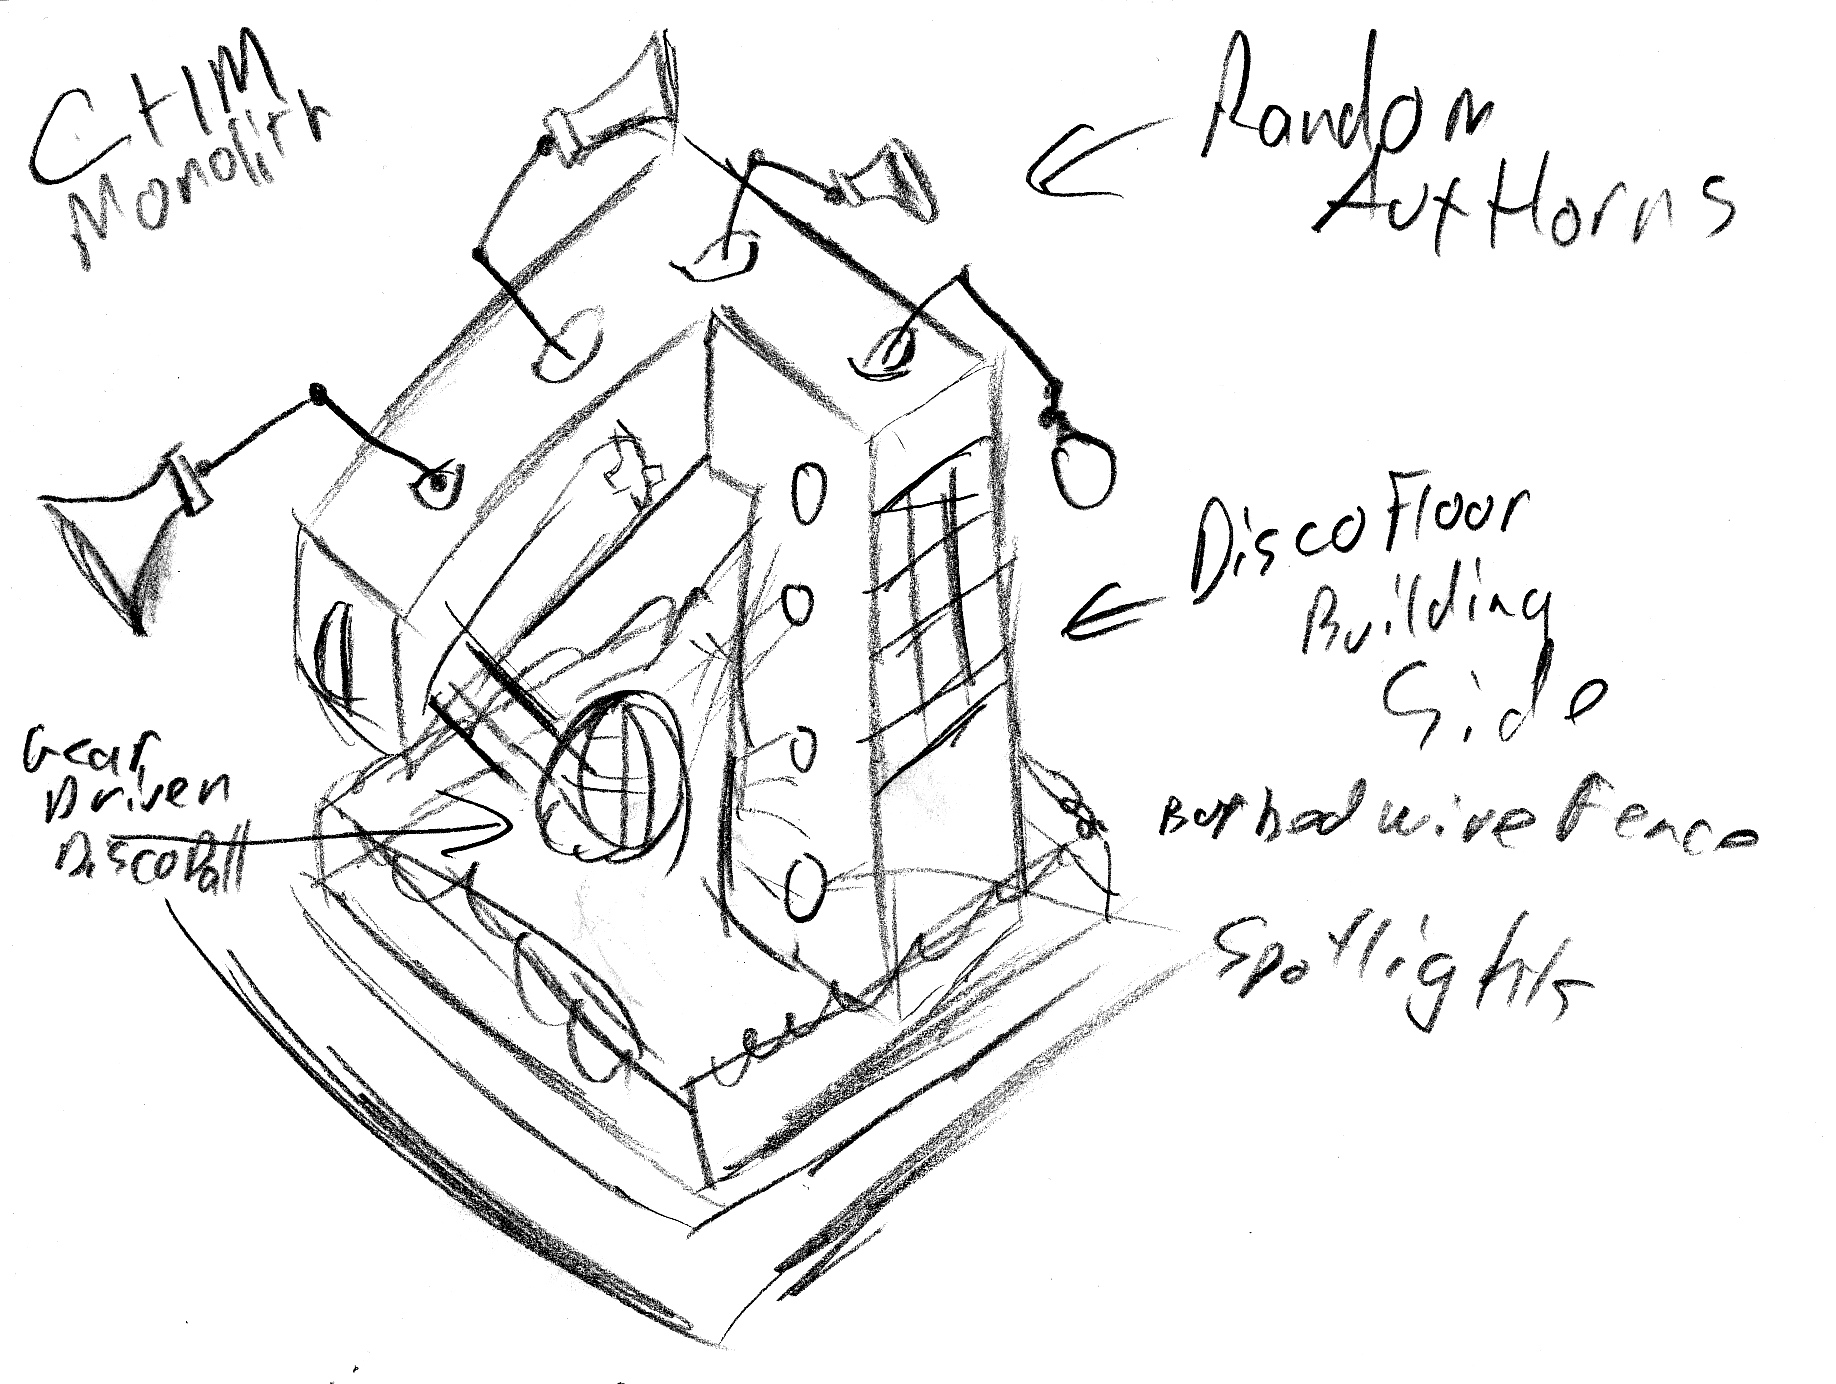 CHIM
Monolith
Random
Aux Horns
Disco Floor
Building
Side
Gear
Driven
Disco Ball
Barbed wire Fence
Spotlights